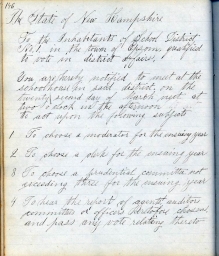 186
The State of New Hampshire
To the Inhabitants of School District
No. 1. in the town of Epsom, qualified
to vote in district affairs,
You are hereby notified to meet at the
schoolhouse in said district, on the
twenty second day of March next at
two o'clock in the afternoon
to act upon the following subjects
1 To choose a moderator for the ensuing year
2 To choose a clerk for the ensuing year
3 To choose a prudential committee not
exceeding three for the ensuing year
4 To hear the report of agents, auditors
committees or officers heretofore chosen
and pass any vote relating thereto